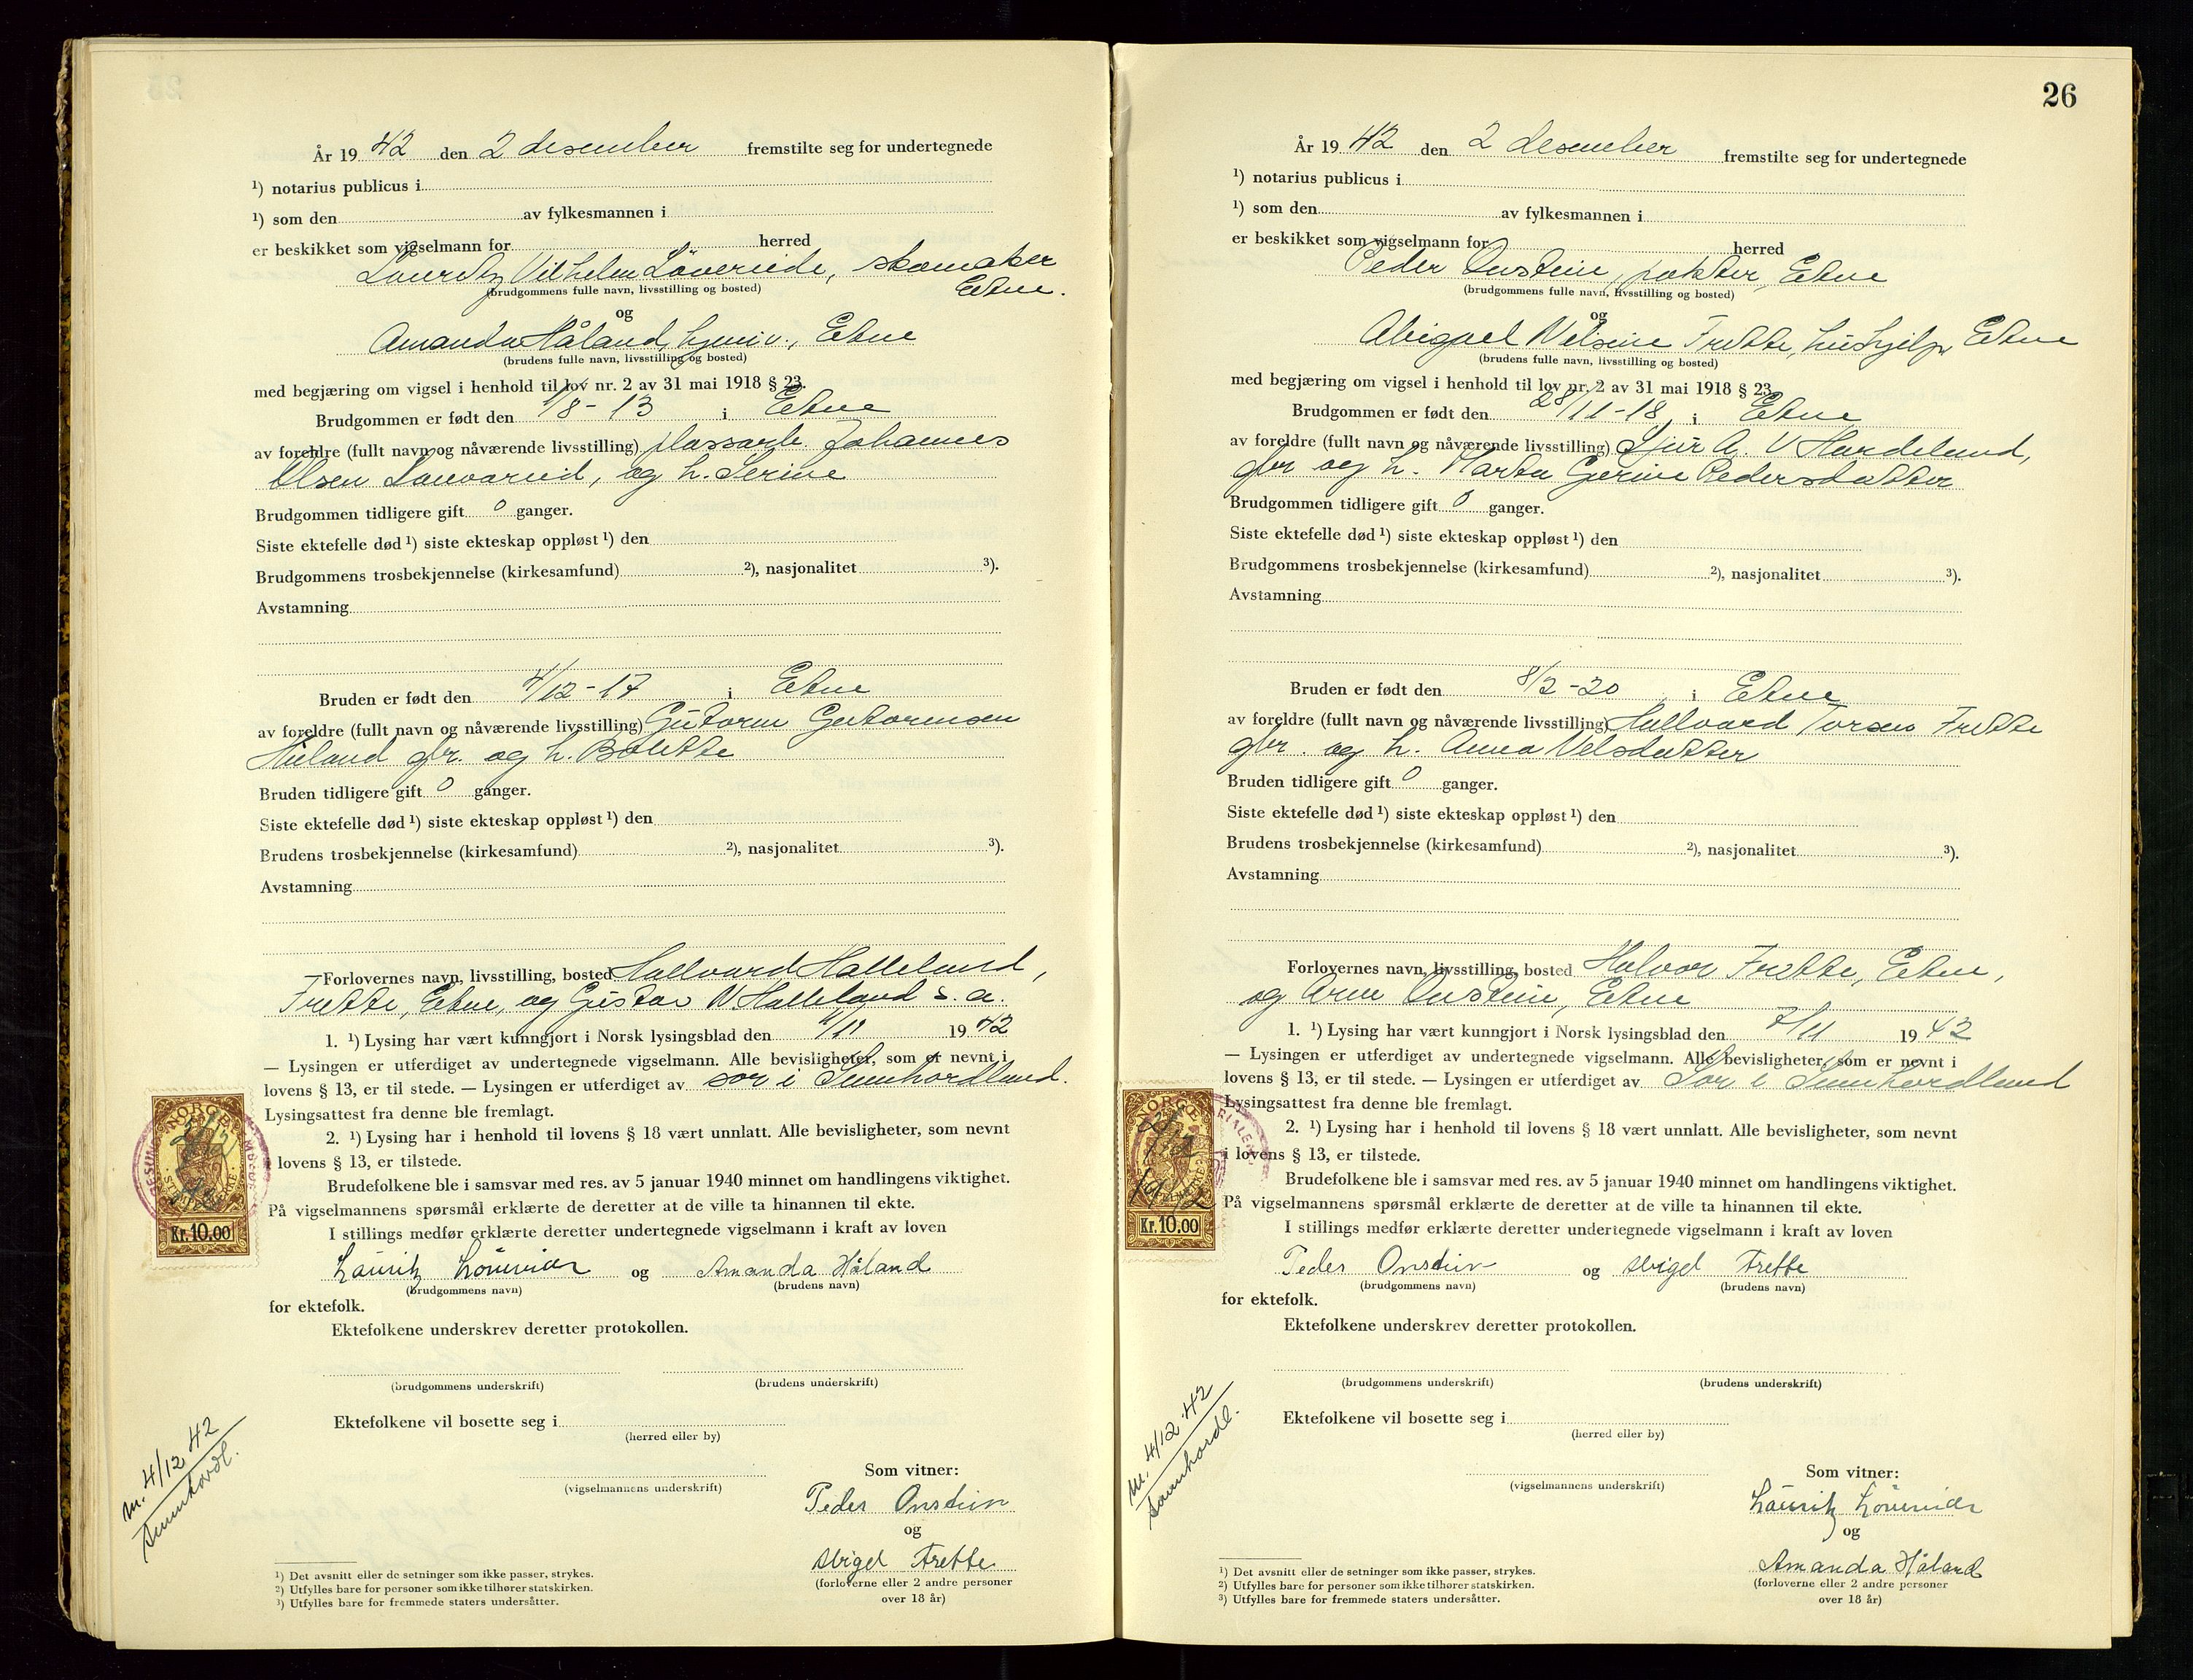 År 19 42 den 2 desember fremstilte seg for undertegnede
¹) notarius publicus i
¹) som den av fylkesmannen i
er beskikket som vigselmann for herred
Lauritz Vilhelm Löveriede, skomaker
Etne.
(brudgommens fulle navn, livsstilling og bosted)
og
Amanda Håland, hjemv., Etne
(brudens fulle navn, livsstilling og bosted)
med begjæring om vigsel i henhold til lov nr. 2 av 31 mai 1918 § 23.
Brudgommen er født den /8-13 i Etne
av foreldre (fullt navn og nåværende livsstilling) plassarb. Johannes
Olsen, og h. Serine
Brudgommen tidligere gift 0 ganger.
Siste ektefelle død ¹) siste ekteskap oppløst ¹) den
Brudgommens trosbekjennelse (kirkesamfund) ²), nasjonalitet ³).
Avstamning
Bruden er født den 4/12-17 i Etne
av foreldre (fullt navn og nåværende livsstilling) Gutorm Gutormsen
Håland gbr. og h. Bolette
Bruden tidligere gift 0 ganger.
Siste ektefelle død ¹) siste ekteskap oppløst ¹) den
Brudens trosbekjennelse (kirkesamfund) ²), nasjonalitet ³).
Avstamning
Forlovernes navn, livsstilling, bosted Hallvard Halleland,
Frette, Etne, og Gustav N Halleland s. a.
1. ¹) Lysing har vært kunngjort i Norsk lysingsblad den /11 19 42
— Lysingen er utferdiget av undertegnede vigselmann. Alle bevisligheter, som er nevnt i
lovens § 13, er til stede. — Lysingen er utferdiget av sor i Sunnhordland.
Lysingsattest fra denne ble fremlagt.
2. ¹) Lysing har i henhold til lovens § 18 vært unnlatt. Alle bevisligheter, som nevnt
i lovens § 13, er tilstede.
Brudefolkene ble i samsvar med res. av 5 januar 1940 minnet om handlingens viktighet.
På vigselmannens spørsmål erklærte de deretter at de ville ta hinannen til ekte.
I stillings medfør erklærte deretter undertegnede vigselmann i kraft av loven
NORGE
STEMPELMERKE
Kr. 10.00
Lauritz Löveride og Amanda Håland
(brudgommens navn) (brudens navn)
for ektefolk.
Ektefolkene underskrev deretter protokollen.
(brudgommens underskrift) (brudens underskrift)
Ektefolkene vil bosette seg i
(herred eller by)
m. 4/12 42
Sunnhordl.
(vigselmannens underskrift)
Som vitner:
Peder Onstein
og
Abigel Frette
(forloverne eller 2 andre personer
over 18 år)
¹) Det avsnitt eller de setninger som ikke passer, strykes.
²) Utfylles bare for personer som ikke tilhører statskirken.
³) Utfylles bare for fremmede staters undersåtter.
26
År 19 42 den 2 desember fremstilte seg for undertegnede
¹) notarius publicus i
¹) som den av fylkesmannen i
er beskikket som vigselmann for herred
Peder Onstein, pakter, Etne
(brudgommens fulle navn, livsstilling og bosted)
og
Abigael Nelsine Frette, hushjelp, Etne
(brudens fulle navn, livsstilling og bosted)
med begjæring om vigsel i henhold til lov nr. 2 av 31 mai 1918 § 23.
Brudgommen er født den 28/11-18 i Etne
av foreldre (fullt navn og nåværende livsstilling) Sjur A. V Hardeland,
gbr og h. Marta Gurine Pedersdatter
Brudgommen tidligere gift 0 ganger.
Siste ektefelle død ¹) siste ekteskap oppløst ¹) den
Brudgommens trosbekjennelse (kirkesamfund) ²), nasjonalitet ³).
Avstamning
Bruden er født den 8/2-20 i Etne
av foreldre (fullt navn og nåværende livsstilling) Hallvard Torsen Frette
gbr. og h. Anna Nelsdatter
Bruden tidligere gift 0 ganger.
Siste ektefelle død ¹) siste ekteskap oppløst ¹) den
Brudens trosbekjennelse (kirkesamfund) ²), nasjonalitet ³).
Avstamning
Forlovernes navn, livsstilling, bosted Halvor Frette, Etne,
og Arne Onstein, Etne
1. ¹) Lysing har vært kunngjort i Norsk lysingsblad den 7/11 19 42
— Lysingen er utferdiget av undertegnede vigselmann. Alle bevisligheter, som er nevnt i
lovens § 13, er til stede. — Lysingen er utferdiget av Sor i Sunnhordland
Lysingsattest fra denne ble fremlagt.
2. ¹) Lysing har i henhold til lovens § 18 vært unnlatt. Alle bevisligheter, som nevnt
i lovens § 13, er tilstede.
Brudefolkene ble i samsvar med res. av 5 januar 1940 minnet om handlingens viktighet.
På vigselmannens spørsmål erklærte de deretter at de ville ta hinannen til ekte.
I stillings medfør erklærte deretter undertegnede vigselmann i kraft av loven
NORGE
Kr. 10.00
Peder Onstein og Abigel Frette
(brudgommens navn) (brudens navn)
for ektefolk.
Ektefolkene underskrev deretter protokollen.
(brudgommens underskrift) (brudens underskrift)
Ektefolkene vil bosette seg i
(herred eller by)
m. 4/12 42
Sunnhordl.
(vigselmannens underskrift)
Som vitner:
Lauritz Löveride
og
Amanda Håland
(forloverne eller 2 andre personer
over 18 år)
¹) Det avsnitt eller de setninger som ikke passer, strykes.
²) Utfylles bare for personer som ikke tilhører statskirken.
³) Utfylles bare for fremmede staters undersåtter.